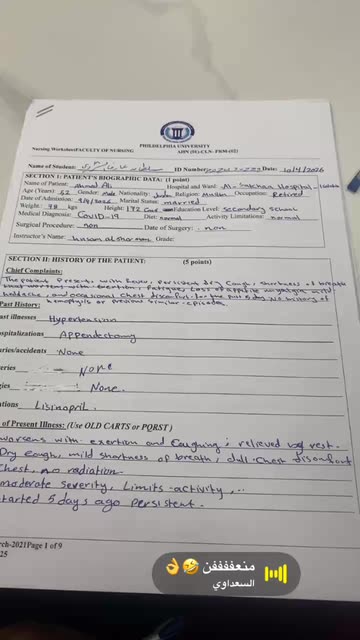 PHILDELPHIA UNIVERSITY
Nursing Worksheet/FACULTY OF NURSING
Name of Student:
ID Number
10/4/2026
SECTION I: PATIENT'S BIOGRAPHIC DATA: (1 point)
Name of Patient: Ahmad Ali Hospital and Ward: Hospital
Age (Years) 52 Gender: Male Nationality: Religion: Muslim Occupation: Retired
Date of Admission: Marital Status: married
Weight: kgs Height: 172 Education Level: secondary school
Medical Diagnosis: CoviD-19 Diet: normal Activity Limitations: normal
Surgical Procedure: non Date of Surgery: non
Instructor's Name: Grade:
SECTION II: HISTORY OF THE PATIENT: (5 points)
Chief Complaints:
The patient presents with fever, persistent dry cough, shortness of breath
that with exertion, Fatigue, Loss of appetite mild
headache, and occasional chest discomfort for the past 5 day No history of
hemoptysis or previous similar episodes.
Past History:
ast illnesses Hypertension
spitalizations Appendectomy
ries/accidents None
eries None
gies None.
ations Lisinopril.
of Present Illness: (Use OLD CARTS or PQRST)
worsens with exertion and Coughing; relieved rest.
Dry cough, mild shortness of breath, dull chest discomfort
Chest, no radiation
moderate severity, Limits activity,
started 5 days ago persistent.
rch-2021Page 1 of 9
25
منعففففن 🤣👌
السعداوي